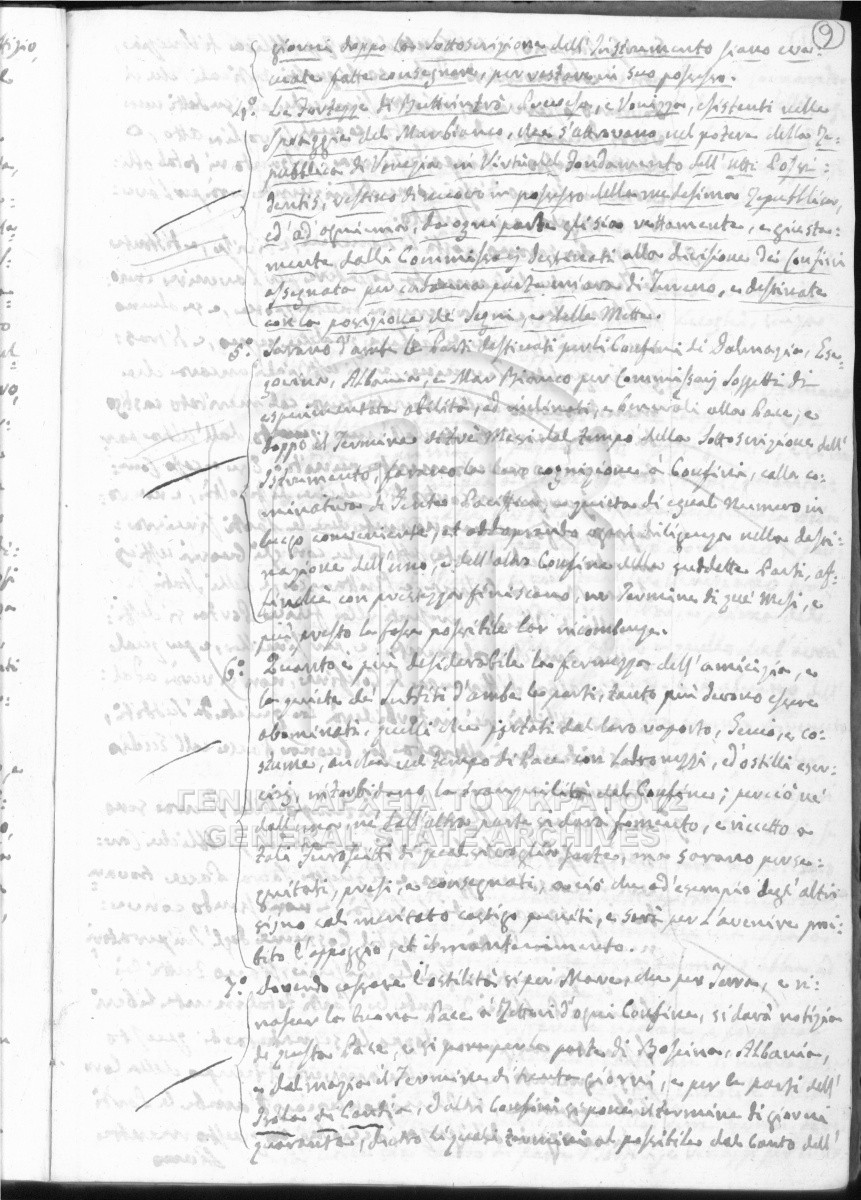 9
giorni doppo la sottoscrizione dell'Instramento siano eva:
cuate fatte consegnare, per restare in suo possesso.
4.º Le Fortezze di Buttrintrò Prevesa, e Vonizza, esistenti nelle
spiaggie del Marbianco, che s'attrovano nel potere della Re:
pubblica di Venezia in Virtù del fondamento dell' Utti Possi:
dentis, restino di nuovo in possesso della medesima Repubblica,
ed ad'ogni una, da ogni parte gli sia rettamente, e giusta:
mente dalli Commissarj destinati alla divisione dei Confini
assegnata per cadauna puoca misura di Terreno, e destinate
con la posizione de Segni, e della Metta.
5.º Sarano d'ambe le Parti destinati per li Confini di Dalmazia, Erze:
govina, Albania, e Mar Bianco per Commissarj Soggetti di
esperimentata abilità, ed inclinati, e benevoli alla Pace, e
doppo il Termine di trè Mesi dal tempo della Sottoscrizione dell'
Istramento, faranno la loro cognizione à Confini, colla co:
mitiva di Gente Pacifica, e quieta di egual Numero in
luogo conveniente, et addoprando ogni diligenza nella desti:
nazione dell'uno, e dell'altro Confine delle suddette Parti, af:
finche con prestezza finiscano, nel Termine di due Mesi, e
più presto la fosse possibile lor incombenza.
6.º Quanto è più desiderabile la fermezza dell'amicizia, e
la quiete de' Sudditi d'ambe le parti, tanto più devono essere
abominati, quelli che portati dal loro nuporto, Genio, e co:
stume, anche nel tempo di Pace con Ladronezzi, ed ostilli eser:
cizj, intorbidano la tranquilità del Confine; perciò nè
dall'una, nè dall'altra parte si darà fomento, e ricetto a
tali Furosciti di qual si voglia sorte, ma sarano perse:
guitati, presi, e consegnati, acciò che ad'esempio degl'altri
siano col meritato castigo puniti, e sarà per l'avenire proi:
bito l'appoggio, et il mantenimento.
7.º Dovendo cessare l'ostilità si per Mare, che per Terra, e ri:
nascer la buona Pace à Rettori d'ogni Confine, si darà notizia
di questa Pace, e si pone per le parte di Bossina, Albania,
e Dalmazia il Termine di trenta giorni, e per le parti dell'
Isola di Candia, ed altri Confini si pone il termine di giorni
quaranta, dentro li quali termini al possibile dal Canto dell'
ΓΕΝΙΚΑ ΑΡΧΕΙΑ ΤΟΥ ΚΡΑΤΟΥΣ
GENERAL STATE ARCHIVES